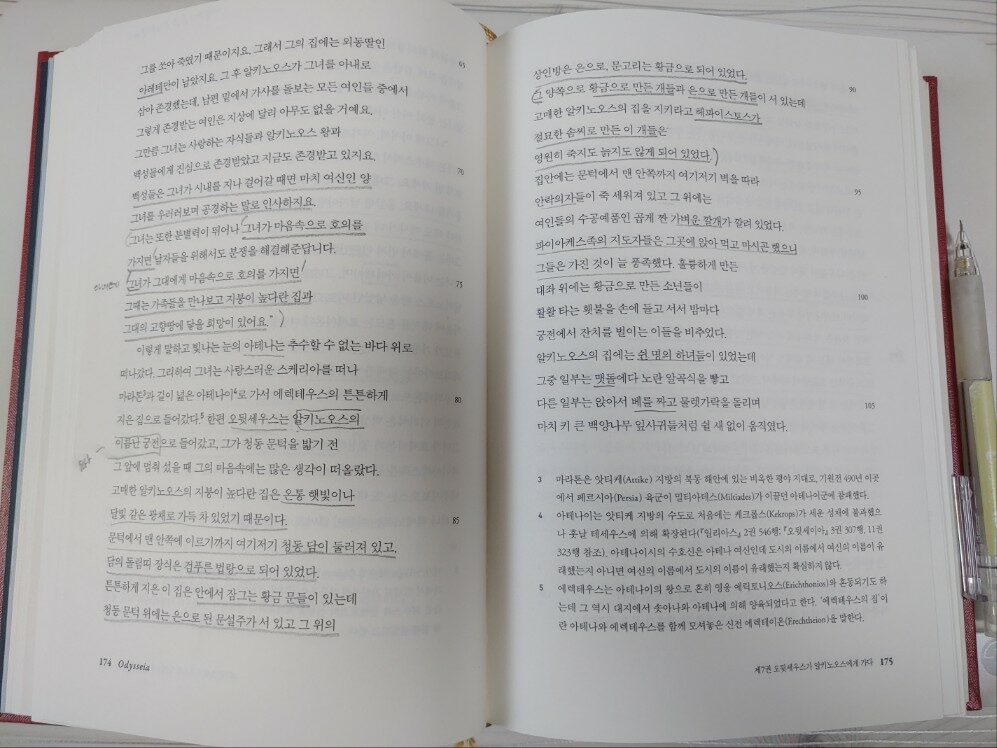 그를 쏘아 죽였기 때문이지요. 그래서 그의 집에는 외동딸인 65
아레테만 남았지요. 그 후 알키노오스가 그녀를 아내로
삼아 존경했는데, 남편 밑에서 가사를 돌보는 모든 여인들 중에서
그렇게 존경받는 여인은 지상에 달리 아무도 없을 거예요.
그만큼 그녀는 사랑하는 자식들과 알키노오스 왕과
백성들에게 진심으로 존경받았고 지금도 존경받고 있지요. 70
백성들은 그녀가 시내를 지나 걸어갈 때면 마치 여신인 양
그녀를 우러러보며 공경하는 말로 인사하지요.
그녀는 또한 분별력이 뛰어나 그녀가 마음속으로 호의를
가지면 남자들을 위해서도 분쟁을 해결해준답니다.
그녀가 그대에게 마음속으로 호의를 가지면 75
그때는 가족들을 만나보고 지붕이 높다란 집과
그대의 고향땅에 닿을 희망이 있어요.”
이렇게 말하고 빛나는 눈의 아테나는 추수할 수 없는 바다 위로
떠나갔다. 그리하여 그녀는 사랑스러운 스케리아를 떠나
마라톤³과 길이 넓은 아테나이⁴로 가서 에렉테우스의 튼튼하게 80
지은 집으로 들어갔다.⁵ 한편 오뒷세우스는 알키노오스의
이름난 궁전으로 들어갔고, 그가 청동 문턱을 밟기 전
그 앞에 멈춰 섰을 때 그의 마음속에는 많은 생각이 떠올랐다.
고매한 알키노오스의 지붕이 높다란 집은 온통 햇빛이나
달빛 같은 광채로 가득 차 있었기 때문이다. 85
문턱에서 맨 안쪽에 이르기까지 여기저기 청동 담이 둘러져 있고,
담의 돌림띠 장식은 검푸른 법랑으로 되어 있었다.
튼튼하게 지은 이 집은 안에서 잠그는 황금 문들이 있는데
청동 문턱 위에는 은으로 된 문설주가 서 있고 그 위의
174 Odysseia
상인방은 은으로, 문고리는 황금으로 되어 있었다. 90
그 양쪽으로 황금으로 만든 개들과 은으로 만든 개들이 서 있는데
고매한 알키노오스의 집을 지키라고 헤파이스토스가
절묘한 솜씨로 만든 이 개들은
영원히 죽지도 늙지도 않게 되어 있었다.
집안에는 문턱에서 맨 안쪽까지 여기저기 벽을 따라 95
안락의자들이 죽 세워져 있고 그 위에는
여인들의 수공예품인 곱게 짠 가벼운 깔개가 깔려 있었다.
파이아케스족의 지도자들은 그곳에 앉아 먹고 마시곤 했으니
그들은 가진 것이 늘 풍족했다. 훌륭하게 만든
대좌 위에는 황금으로 만든 소년들이 100
활활 타는 횃불을 손에 들고 서서 밤마다
궁전에서 잔치를 벌이는 이들을 비추었다.
알키노오스의 집에는 쉰 명의 하녀들이 있었는데
그중 일부는 맷돌에다 노란 알곡식을 빻고
다른 일부는 앉아서 베를 짜고 물렛가락을 돌리며 105
마치 키 큰 백양나무 잎사귀들처럼 쉴 새 없이 움직였다.
3 마라톤은 앗티케(Attike) 지방의 북동 해안에 있는 비옥한 평야 지대로, 기원전 490년 이곳
에서 페르시아(Persia) 육군이 밀티아데스(Miltiades)가 이끌던 아테나이군에 참패했다.
4 아테나이는 앗티케 지방의 수도로 처음에는 케크롭스(Kekrops)가 세운 성채에 불과했으
나 훗날 테세우스에 의해 확장된다(『일리아스』 2권 546행; 『오뒷세이아』 3권 307행, 11권
323행 참조). 아테나이시의 수호신은 아테나 여신인데 도시의 이름에서 여신의 이름이 유
래했는지 아니면 여신의 이름에서 도시의 이름이 유래했는지 확실하지 않다.
5 에렉테우스는 아테나이의 왕으로 흔히 영웅 에릭토니오스(Erichthonios)와 혼동되기도 하
는데 그 역시 대지에서 솟아나와 아테나에 의해 양육되었다고 한다. ‘에렉테우스의 집’이
란 아테나와 에렉테우스를 함께 모셔놓은 신전 에렉테이온(Erechtheion)을 말한다.
제7권 오뒷세우스가 알키노오스에게 가다 175